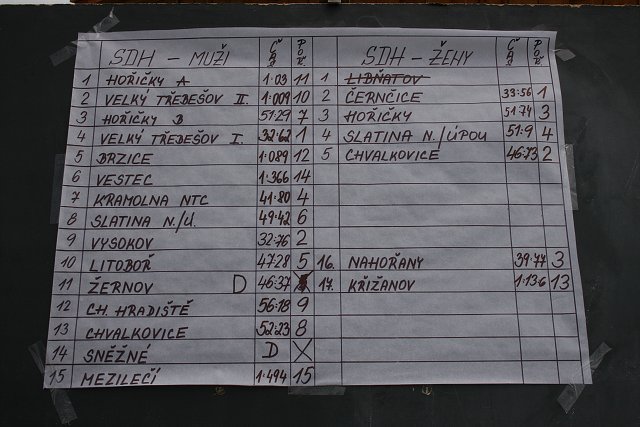 SDH - MUŽI ČAS POŘ. SDH - ŽENY ČAS POŘ.
1 HOŘIČKY A 1:03 11 1 LIBŇATOV
2 VELKÝ TŘEBEŠOV II. 1:009 10 2 ČERNČICE 33:56 1
3 HOŘIČKY B 51:29 7 3 HOŘIČKY 51:74 3
4 VELKÝ TŘEBEŠOV I. 32:62 1 4 SLATINA N./ÚPOU 51:9 4
5 BRZICE 1:089 12 5 CHVALKOVICE 46:73 2
6 VESTEC 1:366 14
7 KRAMOLNA NTC 41:80 4
8 SLATINA N./Ú. 49:42 6
9 VYSOKOV 32:76 2
10 LITOBOŘ 47:28 5 16. NAHOŘANY 39:77 3
11 ŽERNOV D 46:37 17. KŘIŽANOV 1:13:6 13
12 CH. HRADIŠTĚ 56:18 9
13 CHVALKOVICE 52:23 8
14 SNĚŽNÉ D X
15 MEZILEČÍ 1:494 15